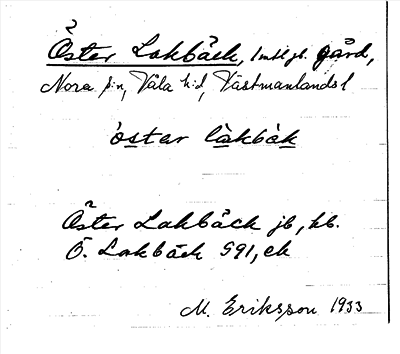 Öster Lakbäck, 1 mtl jb. gård,
Nora s:n, Våla h:d, Västmanlands l
östar lakbäk
Öster Lakbäck jb, kb.
Ö. Lakbäck 591, ek
M. Eriksson 1933